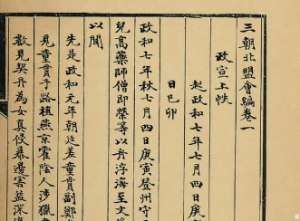 三朝北盟會編卷一
政宣上帙一
起政和七年七月四日庚
日己卯
政和七年秋七月四日庚寅登州守
兒高藥師僧即榮等以舟浮海至文登
以聞
先是政和元年朝廷差童貫副鄭
見童貫于路植燕京霍陰人涉獵
數見契丹為女真侵暴邊害益深